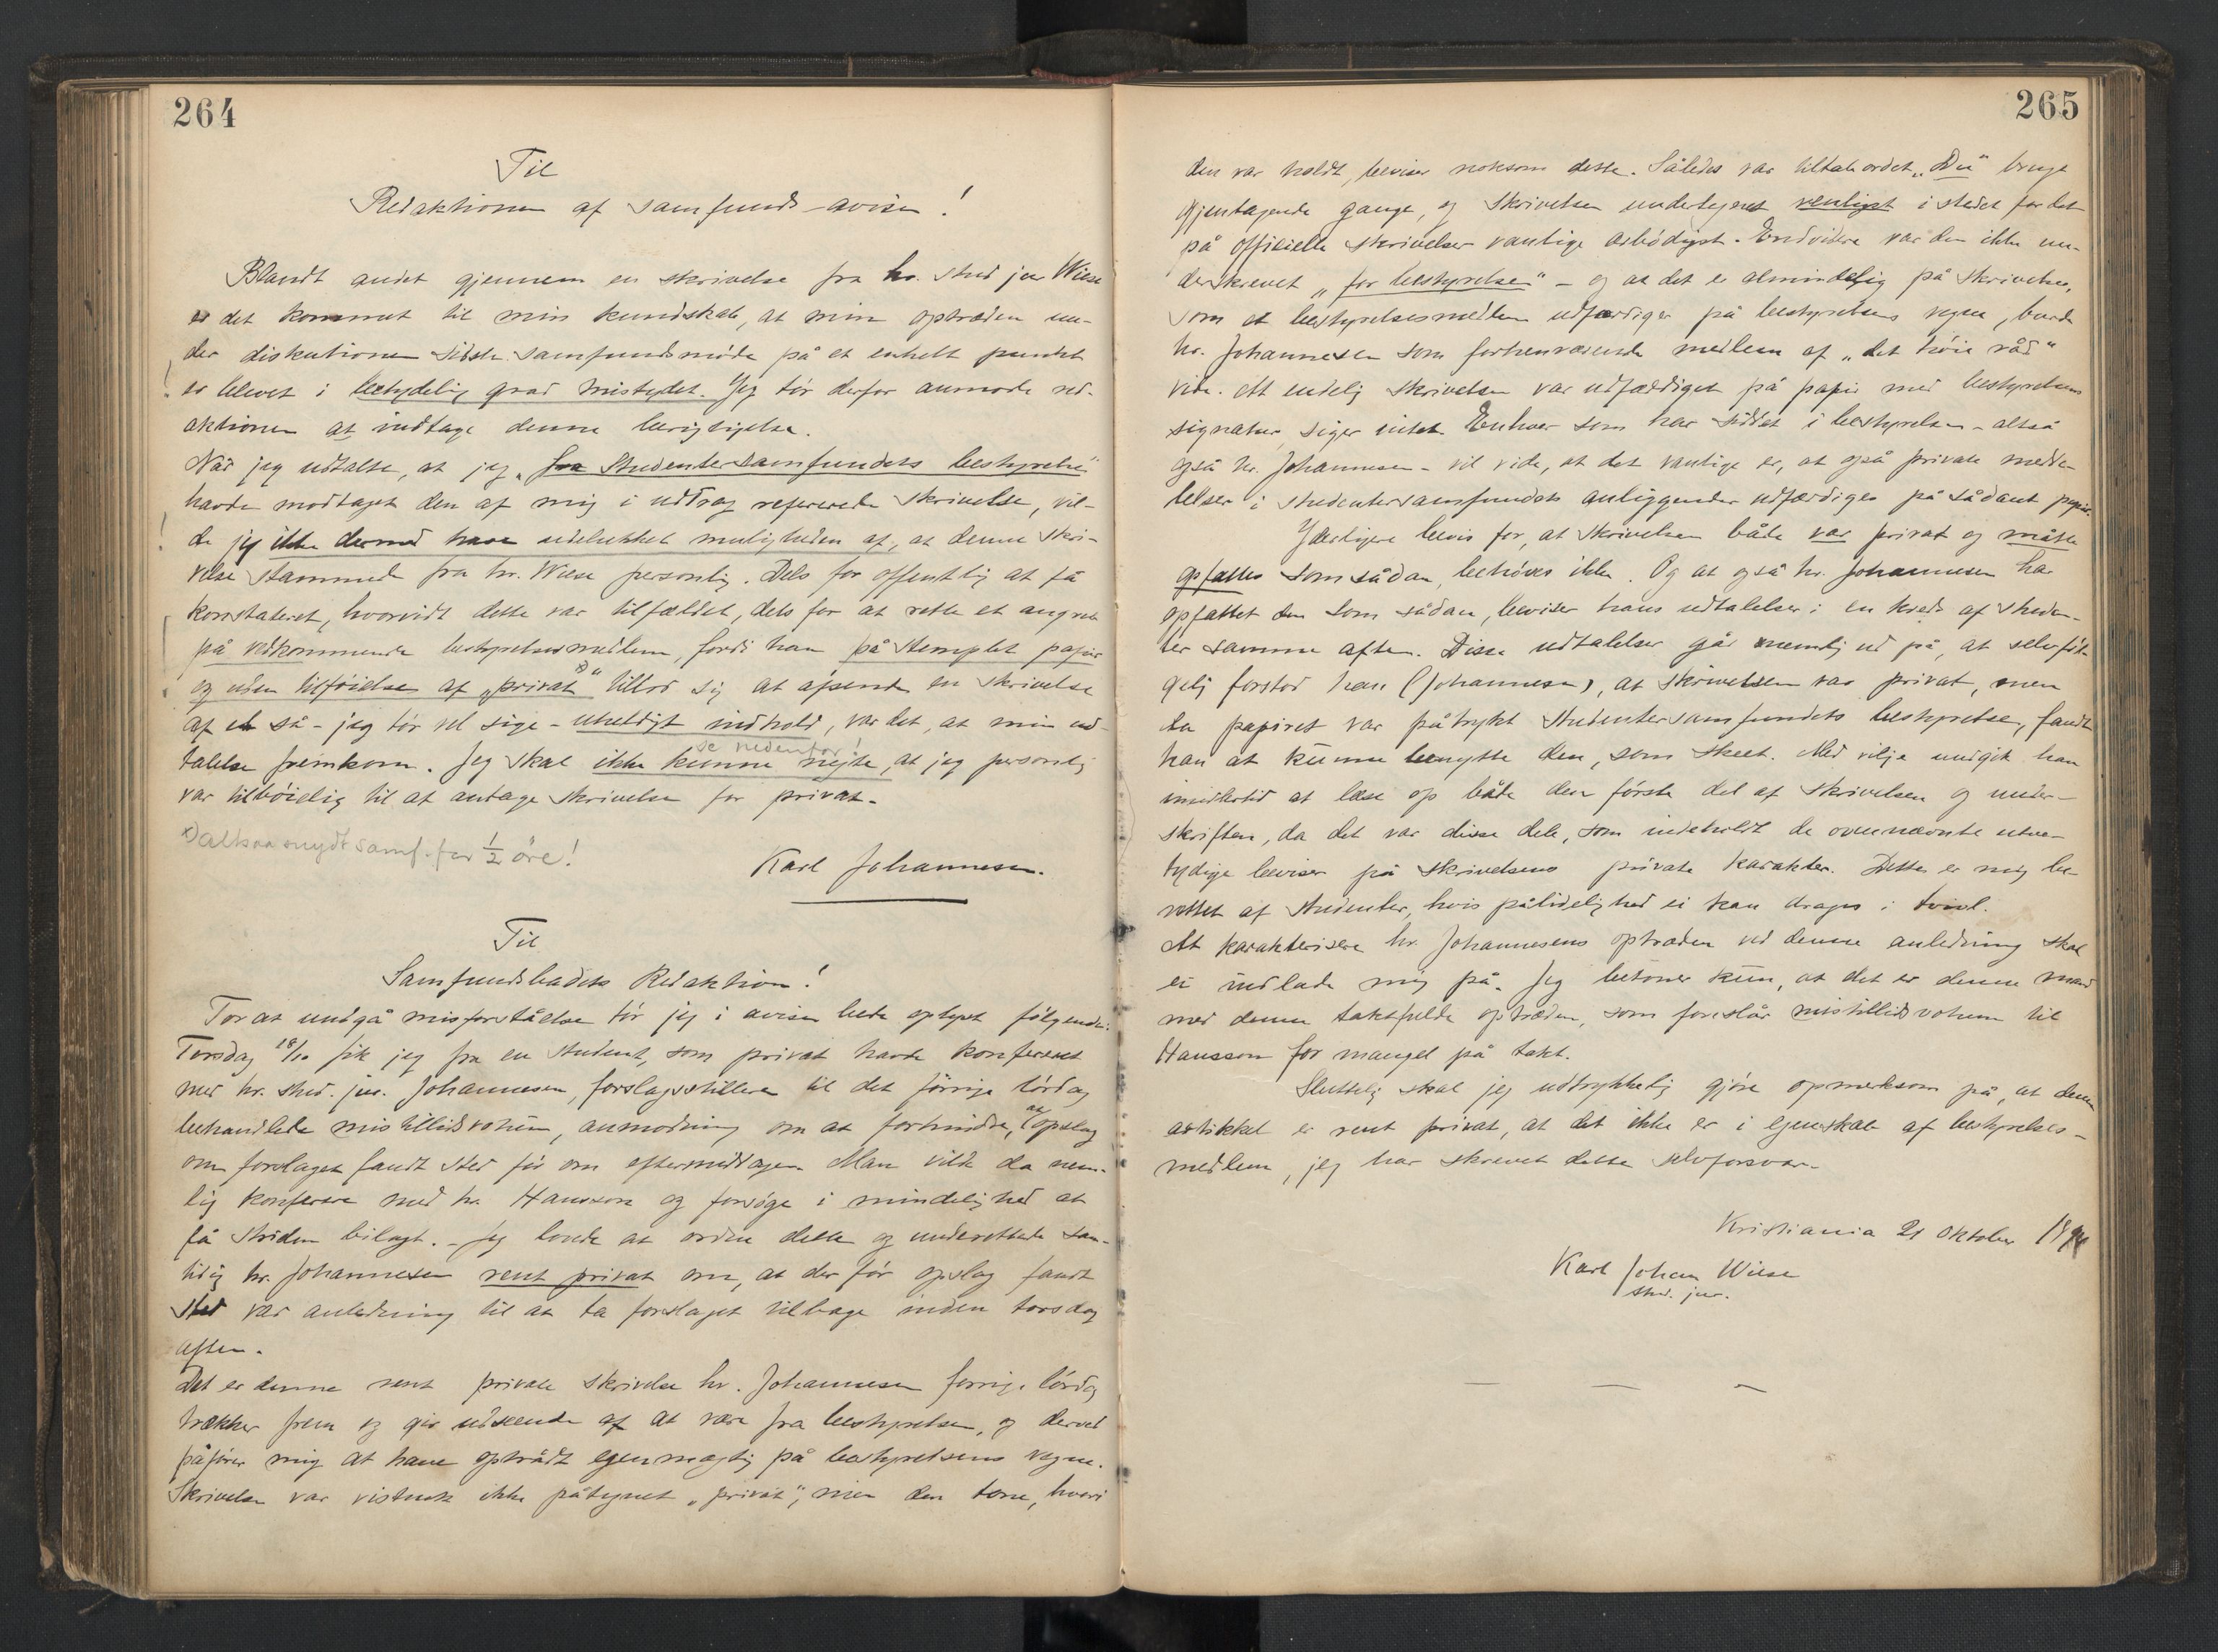 264
Til
Redaktionen af samfunds-avisen!
Blandt andet gjennem en skrivelse fra hr. stud jur Wiese
er det kommet til min kundskab, at min optræden un-
der diskutionen sidste samfundsmøde på et enkelt punkt
er blevet i betydelig grad mistydet. Jeg tør derfor anmode red-
aktionen at indtage denne berigtigelse.
Når jeg udtalte, at jeg „fra Studentersamfundets bestyrelse"
havde modtaget den af mig i uddrag refererede skrivelse, vil-
de jeg ikke dermed have udelukket muligheden af, at denne skri-
velse stammede fra hr. Wiese personlig. Dels for offentlig at få
konstateret, hvorvidt dette var tilfældet, dels for at rette et angreb
på vedkommende bestyrelsesmedlem, fordi han på stemplet papir
og uden tilføielse af „privat" x) tillod sig at afsende en skrivelse
af et så - jeg tør vel sige - uheldigt indhold, var det, at min ud-
se nedenfor!
talelse fremkom. Jeg skal ikke kunne nejte, at jeg personlig
var tilbøielig til at antage skrivelsen for privat.
x) altsaa snydt samf. for ½ øre!
Karl Johannesen.
Til
Samfundsbladets Redaktion!
For at undgå misforståelse tør jeg i avisen bede optyst følgende:
Torsdag 18/10 fik jeg fra en student, som privat havde konfereret
med hr. stud. jur. Johannesen, forslagsstilleren til det forrige lørdag
behandlede mistillidsvotum, anmodning om at forhindre, at opslag
om forslaget fandt sted før om eftermiddagen. Man vilde da nem-
lig konferere med hr. Hansson og forsøge i mindelighed at
få striden bilagt. - Jeg lovede at ordne dette og underrettede sam-
tidig hr. Johannesen rent privat om, at der før opslag fandt
sted var anledning til at ta forslaget tilbage inden torsdag
aften.
Det er denne rent private skrivelse hr. Johannesen forrige lørdag
trækker frem og gir udseende af at være fra bestyrelsen, og derved
påfører mig at have optrådt egenmægtig på bestyrelsens vegne.
Skrivelsen var vistnok ikke påtegnet „privat", men den tone, hvori
265
den var holdt, beviser noksom dette. Således var tiltaleordet „Du" brugt
gjentagende gange, og skrivelsen undertegnet venligst i stedet for det
på officielle skrivelser vanlige ærbødigst. Endvidere var den ikke un-
derskrevet „for bestyrelsen" - og at det er almindelig på skrivelser,
som et bestyrelsesmedlem udfærdiger på bestyrelsens vegne, burde
hr. Johannesen som forhenværende medlem af „det høie råd"
vide. At endelig skrivelsen var udfærdiget på papir med bestyrelsens
signatur, siger intet. Enhver som har siddet i bestyrelsen - altså
også hr. Johannesen - vil vide, at det vanlige er, at også private medde-
lelser i studentersamfundets anliggender udfærdiges på sådant papir.
Yderligere bevis for, at skrivelsen både var privat og måtte
opfattes som sådan, behøves ikke. Og at også hr. Johannesen har
opfattet den som sådan, beviser hans udtalelser i en kreds af studen-
ter samme aften. Disse udtalelser går nemlig ud på, at selvføl-
gelig forstod han (Johannesen), at skrivelsen var privat, men
da papiret var påtrykt Studentersamfundets bestyrelse, fandt
han at kunne benytte den, som skeet. Med vilje undgik han
imidlertid at læse op både den første del af skrivelsen og under-
skriften, da det var disse dele, som indeholdt de ovennævnte utve-
tydige beviser på skrivelsens private karakter. Dette er mig be-
rettet af studenter, hvis pålidelighed ei kan drages i tvivl.
At karakterisere hr. Johannesens optræden ved denne anledning skal
ei indlade mig på. Jeg betoner kun, at det er denne mand
med denne taktfulde optræden, som foreslår mistillidsvotum til
Hansson for mangel på takt.
Sluttelig skal jeg udtrykkelig gjøre opmerksom på, at denne
artikkel er rent privat, at det ikke er i egenskab af bestyrelses-
medlem, jeg har skrevet dette selvforsvar.
Kristiania 21 Oktober
Karl Johan Wiese
stud. jur.